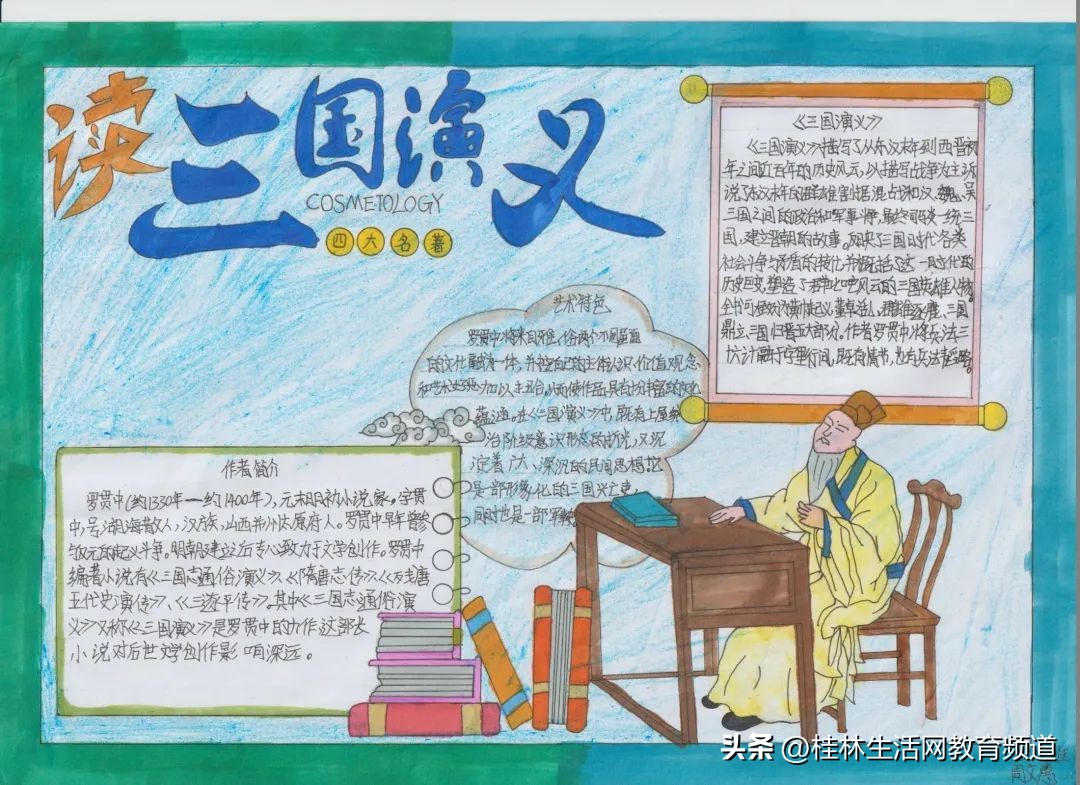 读三国演义
COSMETOLOGY
四大名著
《三国演义》
《三国演义》描写了从东汉末年到西晋初
年之间近百年的历史风云,以描写战争为主,诉
说了东汉末年的群雄割据混战和汉、魏、吴
三国之间的政治和军事
最终司马炎一统三
国,建立晋朝的故事。反映了三国时代各类
社会斗争与矛盾的转化并概括了这一时代的
历史巨变,塑造了一群叱咤风云的三国英雄人物。
全书可
黄巾起义、董卓之乱、群雄逐鹿、三国
鼎立、三国归晋五大部分,作者罗贯中将兵法三
十六计融于字里行间,既有情节,也有兵法韬略。
艺术特色
罗贯中将来自
俗两个不同层面
的文化融为一体,并按自己的主体认识、价值观念
和艺术
加以
从而使作品具有
丰富的文化
蕴涵。在《三国演义》中,既有上层
治阶级意识形态的
,又沉
淀着广大、深沉的民间思想
是一部形象化的三国兴亡史,
同时也是一部军
作者简介
罗贯中(约1330年—约1400年),元末明初小说家。字贯
中,号湖海散人,汉族,山西并州太原府人。罗贯中早年曾参
与反元的起义斗争。明朝建立之后专心致力于文学创作。罗贯中
编著小说有《三国志通俗演义》、《隋唐志传》、《残唐
五代史演传》、《三遂平传》。其中《三国志通俗演
义》又称《三国演义》是罗贯中的力作,这部长
小说对后世文学创作影响深远。
头条 @桂林生活网教育频道
周文